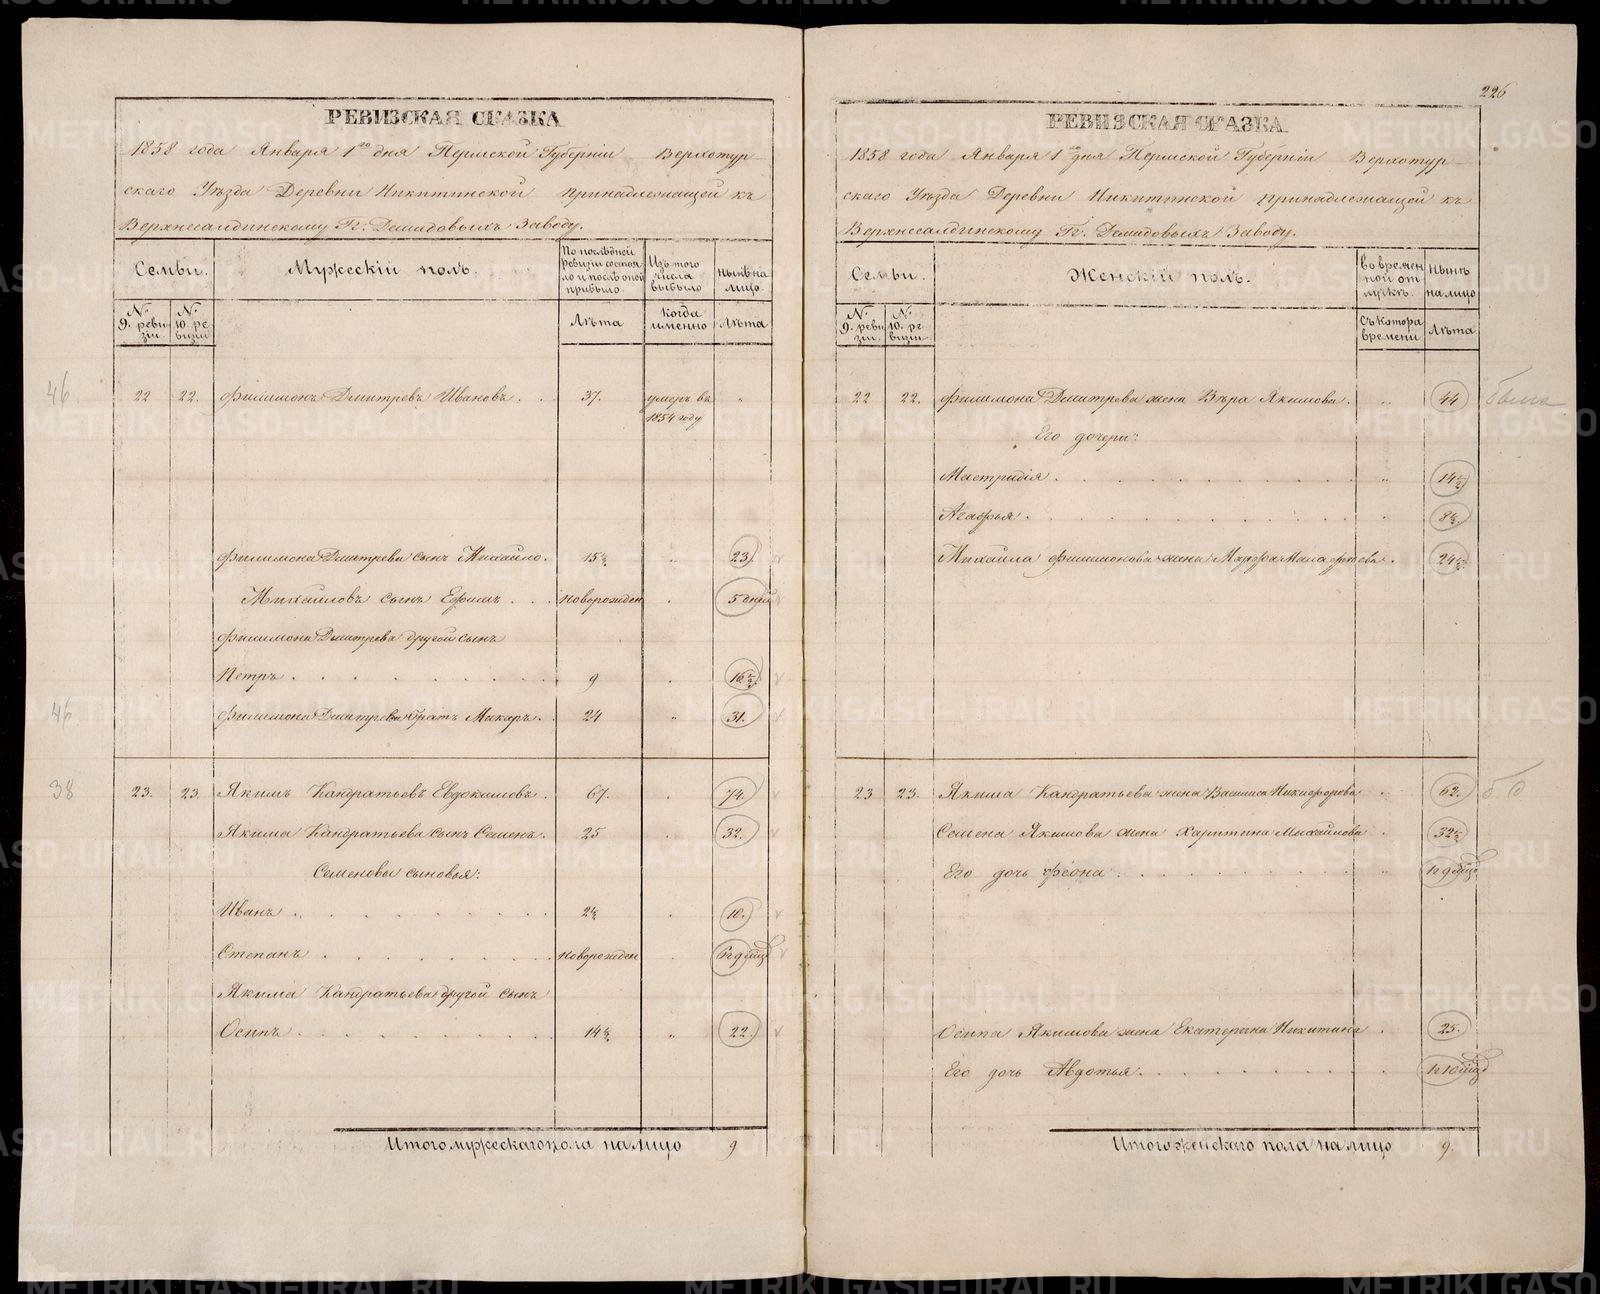 226
РЕВИЗСКАЯ СКАЗКА
1858 года Января 1го дня Пермской Губерніи Верхотур-
скаго Уѣзда Деревни Никитинской принадлежащей къ
Верхнесалдинскому Гг: Демидовыхъ Заводу.
Семьи. Мужескій полъ. По послѣдней ревизіи состояло и послѣ оной прибыло. Изъ того числа выбыло Нынѣ на лицо.
№ 9. ревизіи № 10. ревизіи Лѣта Когда именно Лѣта
46
22 22. Филимонъ Дмитревъ Ивановъ. 37. умеръ въ "
1854 году
Филимона Дмитрева сынъ Михайло. 15½ " 23.
Михайловъ сынъ Ефимъ новорожден 5 дней
Филимона Дмитрева другой сынъ
Петръ 9 16½
46
Филимона Дмитрева братъ Макаръ. 24 " 31.
38
23. 23 Якимъ Кандратьевъ Евдокимовъ. 67. 74.
Якима Кандратьева сынъ Семенъ. 25 32.
Семеновы сыновья:
Иванъ 2½ 10.
Степанъ новорожден
Якима Кандратьева другой сынъ
Осипъ 14½ " 22.
Итого мужескаго пола на лицо 9
РЕВИЗСКАЯ СКАЗКА
1858 года Января 1го дня Пермской Губерніи Верхотур-
скаго Уѣзда Деревни Никитинской принадлежащей къ
Верхнесалдинскому Гг. Демидовыхъ Заводу.
Семьи. Женскій полъ. Во временной отлучкѣ. Нынѣ на лицо
№ 9. ревизіи № 10. ревизіи Съ котора времени Лѣта
22 22. Филимона Дмитрева жена Вѣра Якимова. " 44
Его дочери:
Мастридія. " 14½
Агафья. 8½
Михайла Филимонова жена Марфа 24½
23 23. Якима Кандратьева жена Василиса Никифорова 62.
Семена Якимова жена Харитина Михайлова 32½
Его дочь Феона
Осипа Якимова жена Екатерина Никитина 25.
Его дочь Авдотья.
Итого женскаго пола на лицо 9.
METRIKI.GASO-URAL.RU